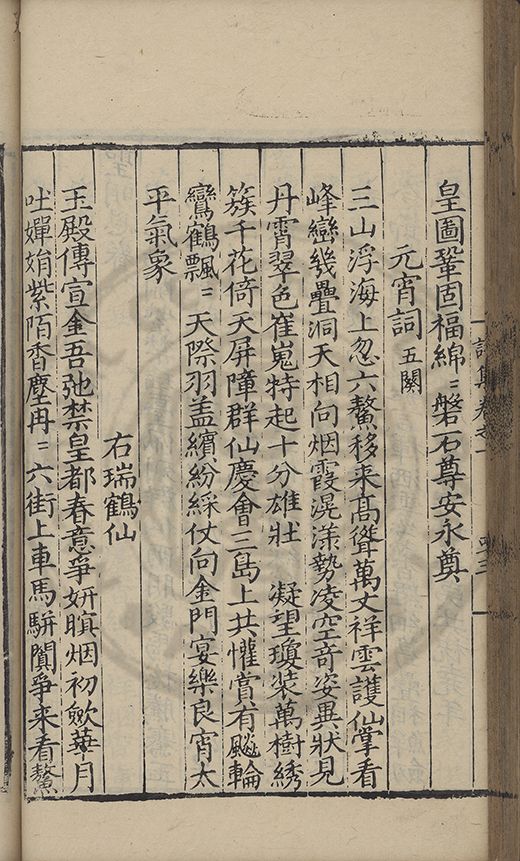 皇圖鞏固福綿〻磐石尊安永奠
元宵詞 五闋
三山浮海上忽六鰲移来高聳萬丈祥雲護仙掌看
峰巒幾疊洞天相向烟霞滉漾勢凌空竒姿異狀見
丹霄翠色崔嵬特起十分雄壯 凝望瓊装萬樹綉
簇千花倚天屏障群仙慶會三島上共懽賞有飇輪
鸞鶴飄〻天際羽盖繽紛綵仗向金門宴樂良宵太
平氣象
右瑞鶴仙
玉殿傳宣金吾弛禁皇都春意爭妍暝烟初歛華月
吐嬋娟紫陌香塵冉〻六街上車馬駢闐爭来看鰲
詩集卷之一